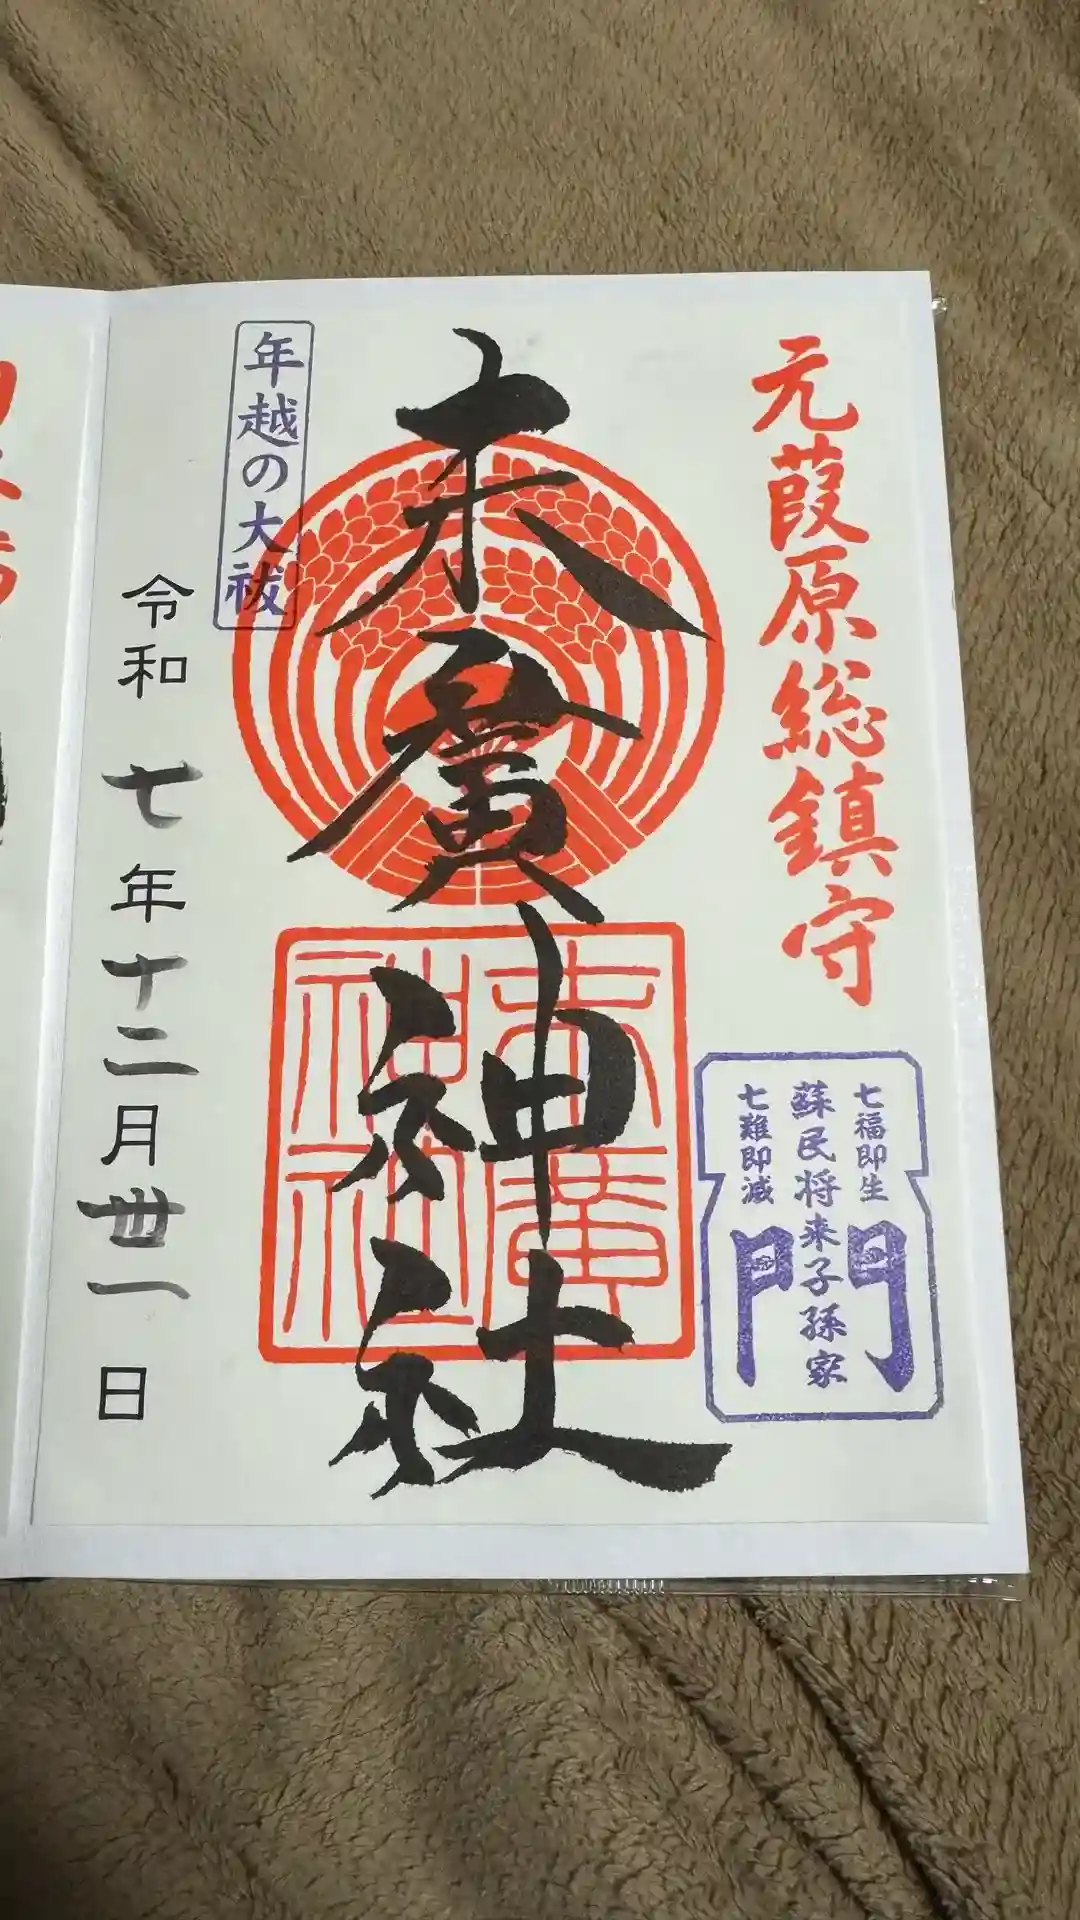 元葭原総鎮守
七福即生
蘇民将来子孫家
七難即滅
門
末廣神社
末廣
神社
年越の大祓
令和七年十二月丗一日